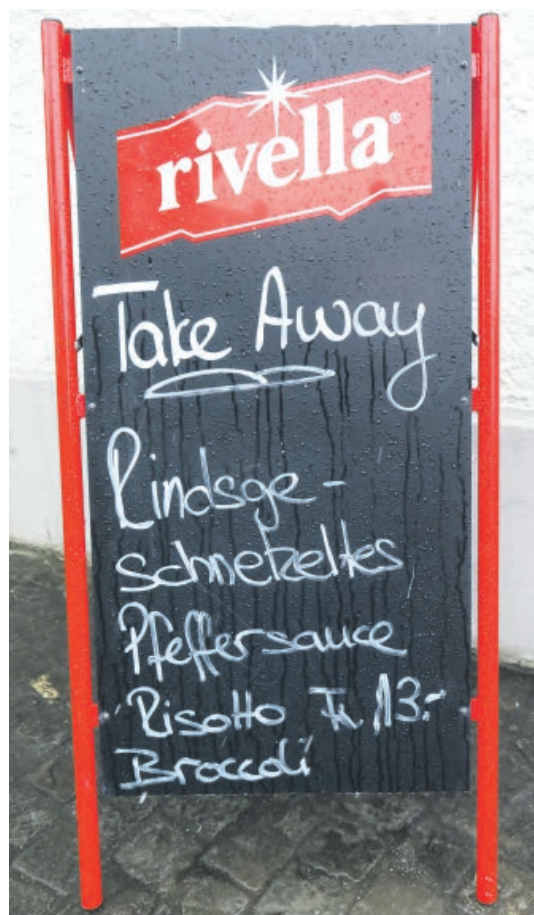 rivella®
Take Away
Rindsge-
schnetzeltes
Pfeffersauce
Risotto Fr. 13.-
Broccoli